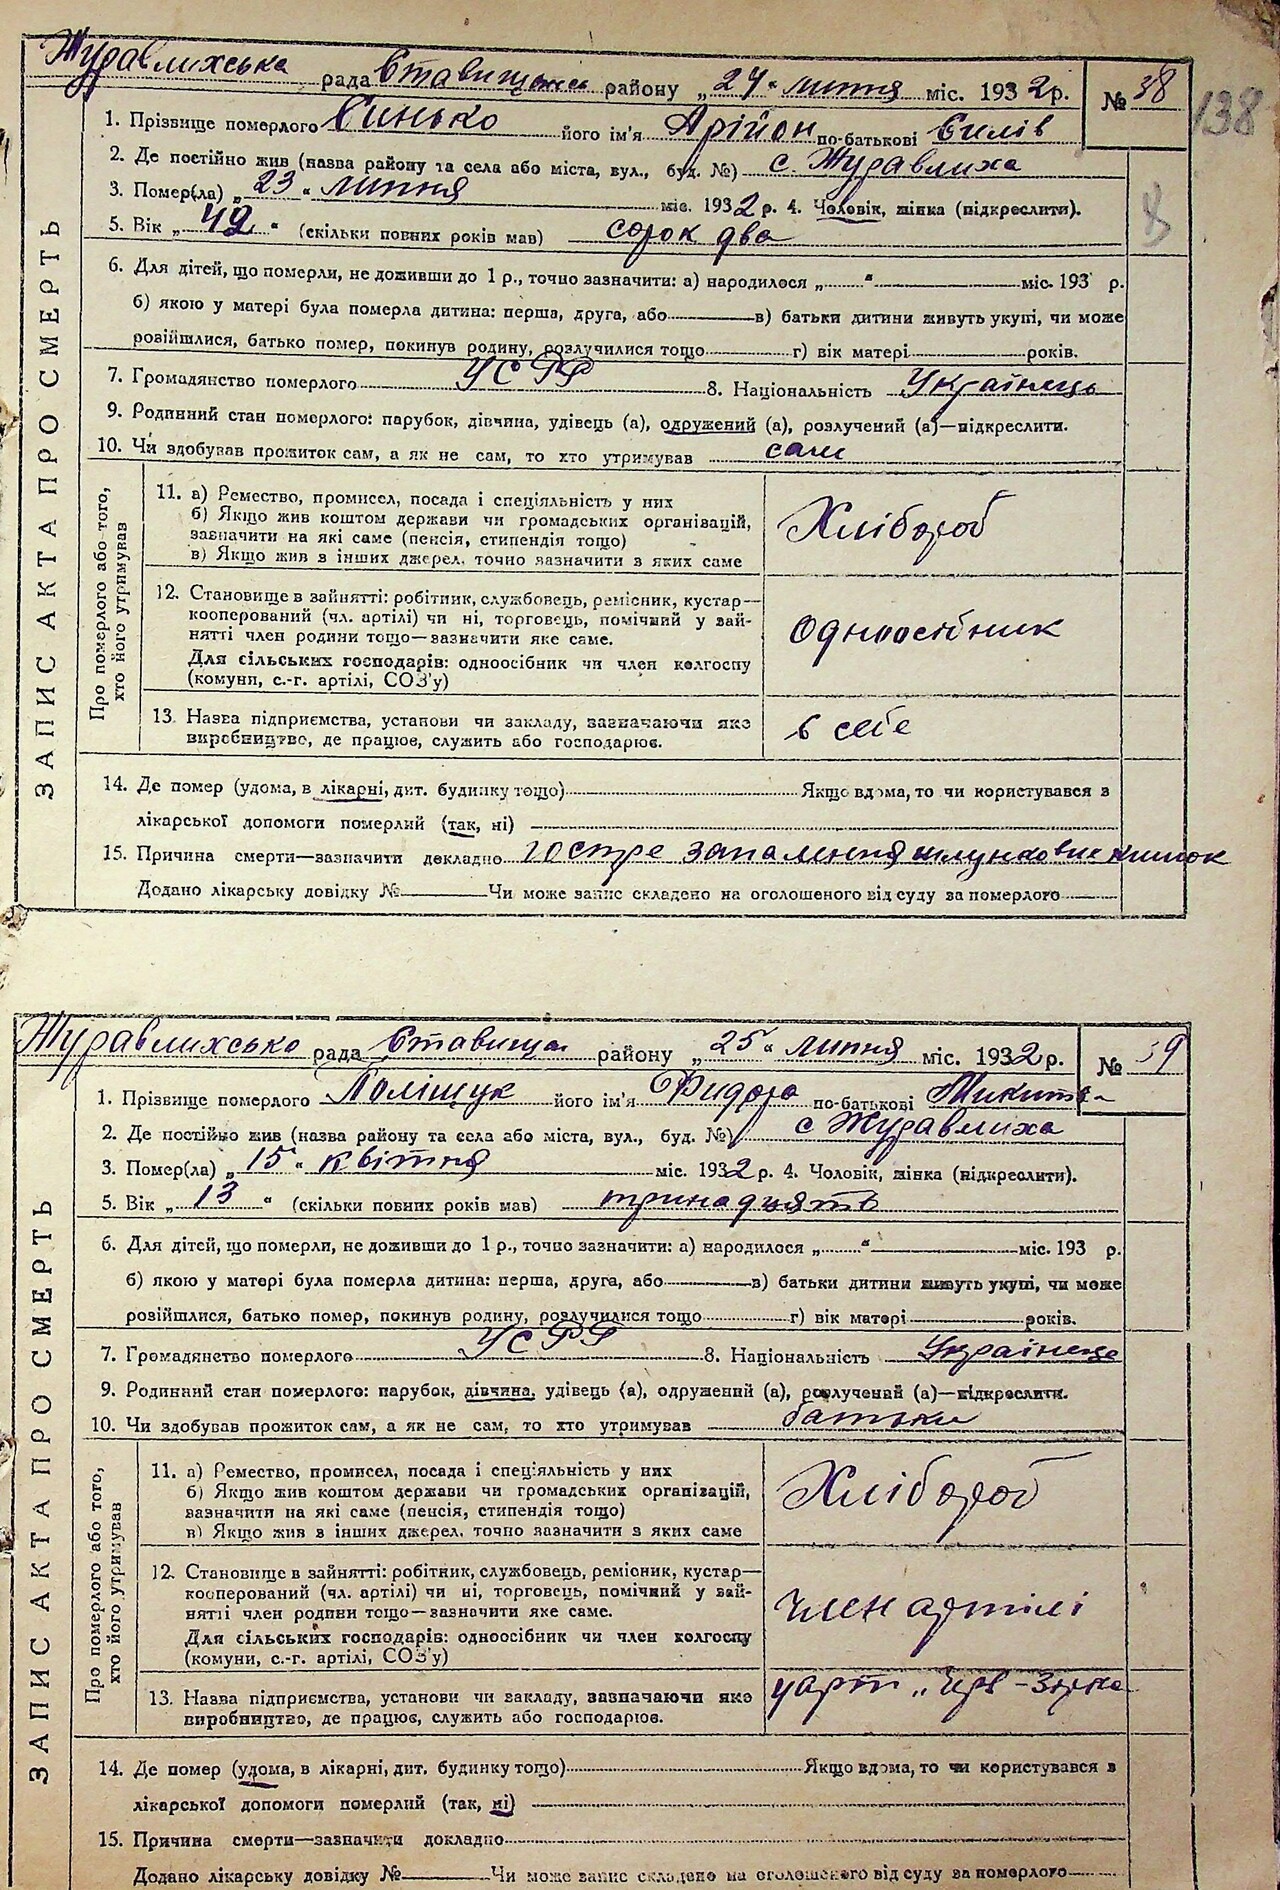 Журавлихська рада Ставищанс району „24“ липня міс. 1932 р. № 38
138
1. Прізвище померлого Синько його ім'я Арійон по-батькові Силів
2. Де постійно жив (назва району та села або міста, вул., буд. №) с. Журавлиха
3. Помер(ла) „23“ липня міс. 1932 р. 4. Чоловік, жінка (підкреслити).
5. Вік „42“ (скільки повних років мав) сорок два
6. Для дітей, що померли, не доживши до 1 р., точно зазначити: а) народилося „ “ міс. 193 р.
б) якою у матері була померла дитина: перша, друга, або в) батьки дитини живуть укупі, чи може
розійшлися, батько помер, покинув родину, розлучилися тощо г) вік матері років.
7. Громадянство померлого УСРР 8. Національність Українець
9. Родинний стан померлого: парубок, дівчина, удівець (а), одружений (а), розлучений (а)—підкреслити.
10. Чи здобував прожиток сам, а як не сам, то хто утримував сам
ЗАПИС АКТА ПРО СМЕРТЬ
Про померлого або того,
хто його утримував
11. а) Ремество, промисел, посада і спеціяльність у них
б) Якщо жив коштом держави чи громадських організацій,
зазначити на які саме (пенсія, стипендія тощо)
в) Якщо жив з інших джерел, точно зазначити з яких саме
Хлібороб
12. Становище в зайнятті: робітник, службовець, ремісник, кустар—
кооперований (чл. артілі) чи ні, торговець, помічний у зай-
нятті член родини тощо—зазначити яке саме.
Для сільських господарів: одноосібник чи член колгоспу
(комуни, с.-г. артілі, СОЗ'у)
одноосібник
13. Назва підприємства, установи чи закладу, зазначаючи яке
виробництво, де працює, служить або господарює.
в себе
14. Де помер (удома, в лікарні, дит. будинку тощо) Якщо вдома, то чи користувався з
лікарської допомоги померлий (так, ні)
15. Причина смерти—зазначити докладно гостре запалення шлункових кишок
Додано лікарську довідку № Чи може запис складено на оголошеного від суду за померлого
Журавлихсько рада Ставищан району „25“ липня міс. 1932 р. № 39
1. Прізвище померлого Поліщук його ім'я Фидора по-батькові Микит
2. Де постійно жив (назва району та села або міста, вул., буд. №) с Журавлиха
3. Помер(ла) „15“ квітня міс. 1932 р. 4. Чоловік, жінка (підкреслити).
5. Вік „13“ (скільки повних років мав) тринадцять
6. Для дітей, що померли, не доживши до 1 р., точно зазначити: а) народилося „ “ міс. 193 р.
б) якою у матері була померла дитина: перша, друга, або в) батьки дитини живуть укупі, чи може
розійшлися, батько помер, покинув родину, розлучилися тощо г) вік матері років.
7. Громадянство померлого УСРР 8. Національність Українець
9. Родинний стан померлого: парубок, дівчина, удівець (а), одружений (а), розлучений (а)—підкреслити.
10. Чи здобував прожиток сам, а як не сам, то хто утримував батьки
ЗАПИС АКТА ПРО СМЕРТЬ
Про померлого або того,
хто його утримував
11. а) Ремество, промисел, посада і спеціяльність у них
б) Якщо жив коштом держави чи громадських організацій,
зазначити на які саме (пенсія, стипендія тощо)
в) Якщо жив з інших джерел, точно зазначити з яких саме
Хлібороб
12. Становище в зайнятті: робітник, службовець, ремісник, кустар—
кооперований (чл. артілі) чи ні, торговець, помічний у зай-
нятті член родини тощо—зазначити яке саме.
Для сільських господарів: одноосібник чи член колгоспу
(комуни, с.-г. артілі, СОЗ'у)
член артілі
13. Назва підприємства, установи чи закладу, зазначаючи яке
виробництво, де працює, служить або господарює.
у арт „Черв-Зірка
14. Де помер (удома, в лікарні, дит. будинку тощо) Якщо вдома, то чи користувався з
лікарської допомоги померлий (так, ні)
15. Причина смерти—зазначити докладно
Додано лікарську довідку № Чи може запис складено на оголошеного від суду за померлого